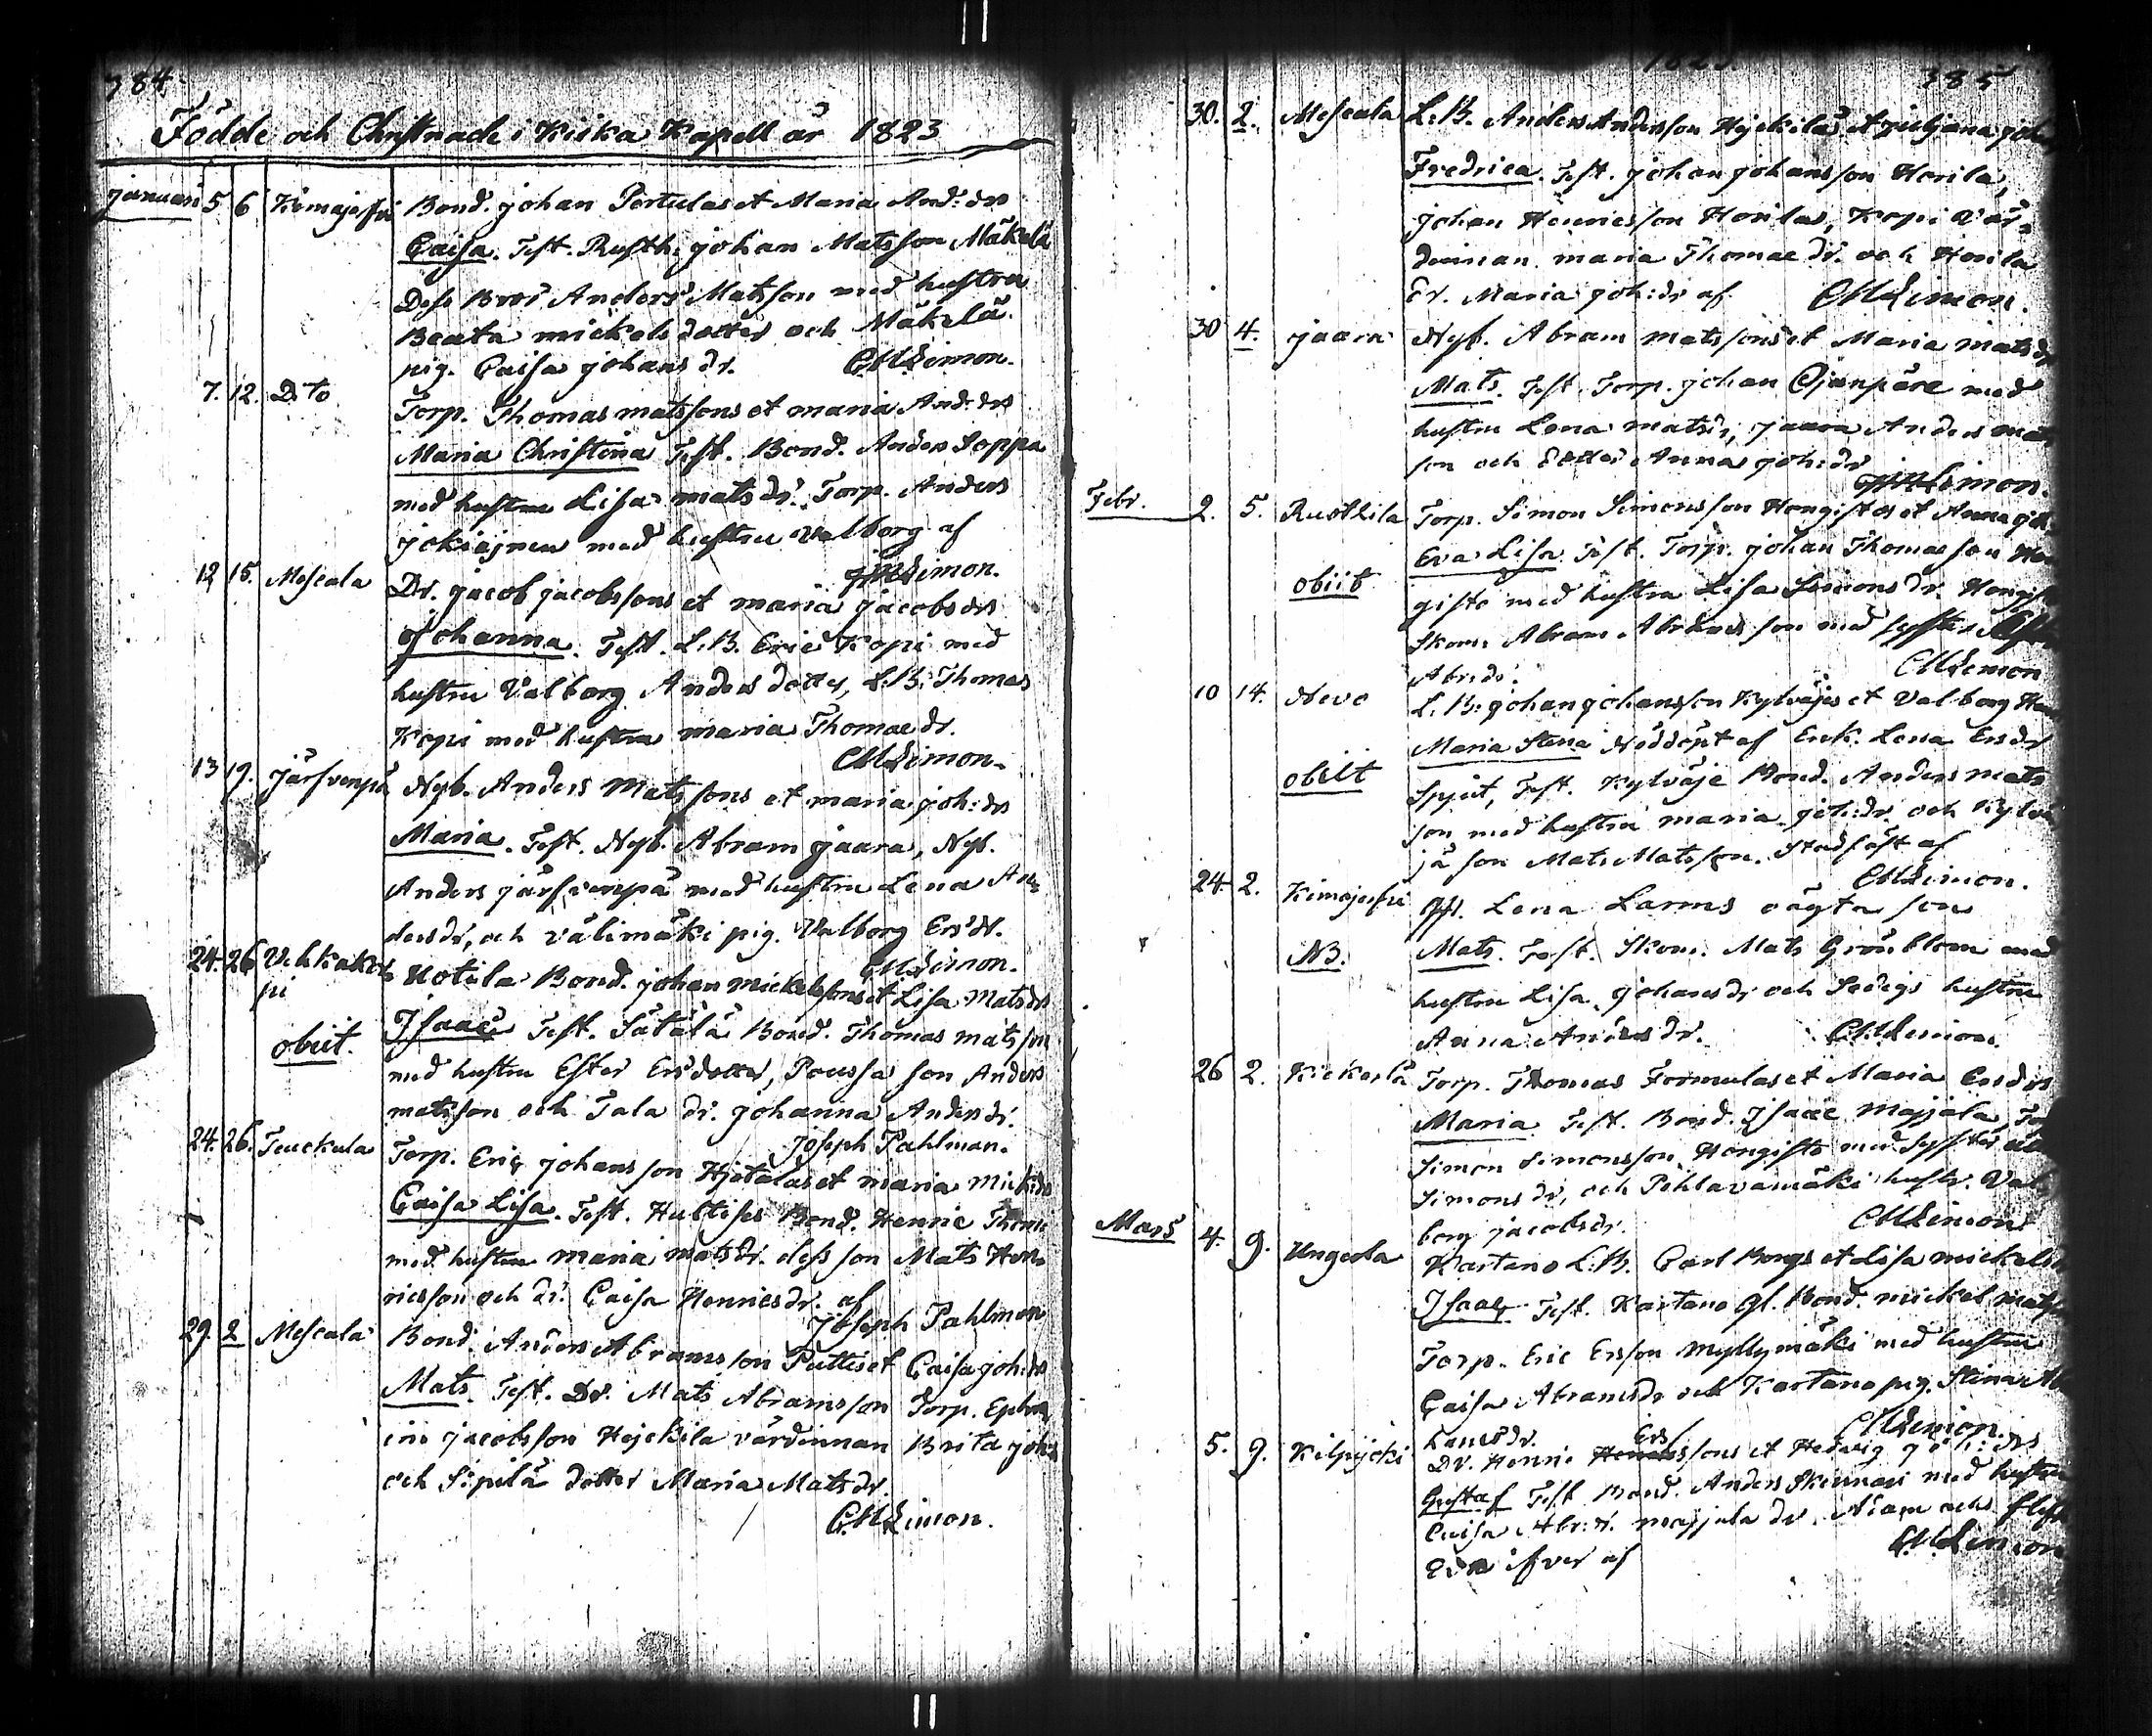 384
Födde och Christnade i Kiska Kapell år 1823
Januari 5 6 Kimajerfvi Bond. Johan Pertulas et Maria And: drs
Caisa. Test. Rusth. Johan Matsson Mäkelä
Dess Bror Anders Matsson med hustru
Beata Mickels dotter och Mäkelä
pig. Caisa Johans dr. CMLimon.
7. 12. Dito Torp. Thomas Matssons et Maria And: drs
Maria Christina Test. Bond. Anders Soppa
med hustru Lisa Mats dr. Torp. Anders
Jokiajnen med hustru Valborg af
Limon.
12 15. Mescala Dr. Jacob Jacobssons et Maria Jacobs drs
Johanna. Test. L.B. Eric Kopi med
hustru Valborg Anders dotter, L.B. Thomas
Kopi med hustru Maria Thomae dr.
CMLimon.
13 19. Järfvenpä Nyb. Anders Matssons et Maria Joh: drs
Maria. Test. Nyb. Abram Jaara, Nyb.
Anders Järfvenpä med hustru Lena An
dersdr, och Välimäki pig. Valborg Ers dr.
CMLimon.
24. 26 Uotila Bond. Johan Mickelssons et Lisa Mats drs
pi
obiit. Isaac Test. Sätälä Bond. Thomas Matsson
med hustru Ester Ers dotter, Poussa son Anders
Matsson och Tala dr. Johanna Anders dr.
Joseph Pahlman.
24. 26. Teuckula Torp. Eric Johansson Hjetalas et Maria Mick: drs
Caisa Lisa. Test. Bond. Henric Thom
med hustru Maria Mats dr. dess son Mats Hen
ricsson och dr. Caisa Henrics dr. af
Joseph Pahlman
29. 2 Mescala Bond. Anders Abramsson Puttis et Caisa Joh: drs
Mats. Test. Dr. Mats Abramsson Torp. Ephra
im Jacobsson Hejckila värdinnan Brita Joh:
och Sipilä dotter Maria Mats dr.
CMLimon.
385
30. 2. Mescala L.B. Anders Andersson Hejckilas et Juliana Joh
Fredrica. Test. Johan Johansson Horila,
Johan Henricsson Horilas, Kopi Vär
dinnan Maria Thomae dr. och Horila
Er. Maria Joh: dr af CMLimon.
30 4. Jaara Nyb. Abram Matssons et Maria Mats dr
Mats. Test. Torp. Johan Ojanpäre med
hustru Lena Matsdr, Jaara Anders Mats
son och dotter Anna Joh: dr
Limon.
Febr. 2. 5. Rusthila Torp. Simon Simonsson Hongistos et Anna Joh
Eva Lisa. Test. Torp. Johan Thomasson Hon
obiit gisto med hustru Lisa Simons dr. Hongisto
Skom. Abram Abrahamsson med syster
Abr: dr. CMLimon
10 14. Nevo L.B. Johan Johansson Kylväjes et Valborg Hen
Maria Stena Nöddöpt af Enk. Lena Ersdr
obiit Spjut, Test. Kylväje Bond. Anders Mats
son med hustru Maria Joh: dr. och Kylvä
jä son Mats Matsson. Stadfäst af
CMLimon.
24. 2. Kimajerfvi Lena Larms oägta son
NB. Mats. Test. Skom. Mats Grönblom med
hustru Lisa Johans dr och Sedigs hustru
Anna Anders dr. CMLimon.
26 2. Kickerlä Torp. Thomas Formulas et Maria Ersdrs
Maria. Test. Bond. Isaac Majjala, Torp
Simon Simonsson Hongisto med Syster
Simons dr, och Pehlavamäki hustr. Val
borg Jacobsdr. CMLimon
Mars 4. 9. Ungeola Kartano L.B. Carl Borgs et Lisa Mickels
Isaac. Test. Kartano Gl. Bond. Mickel Mats
Torp. Eric Ersson Myllymäki med hustru
Caisa Abramsdr och Kartano pig. Stina Ab
CMLimon.
5. 9. Kilpijoki Dr. Henric Ers sons et Hedvig Joh: drs
Gustaf Test. Bond. Anders Skinnari med hustru
Caisa Abr: dr. Majjala dr. Adam och
Eva af CMLimon